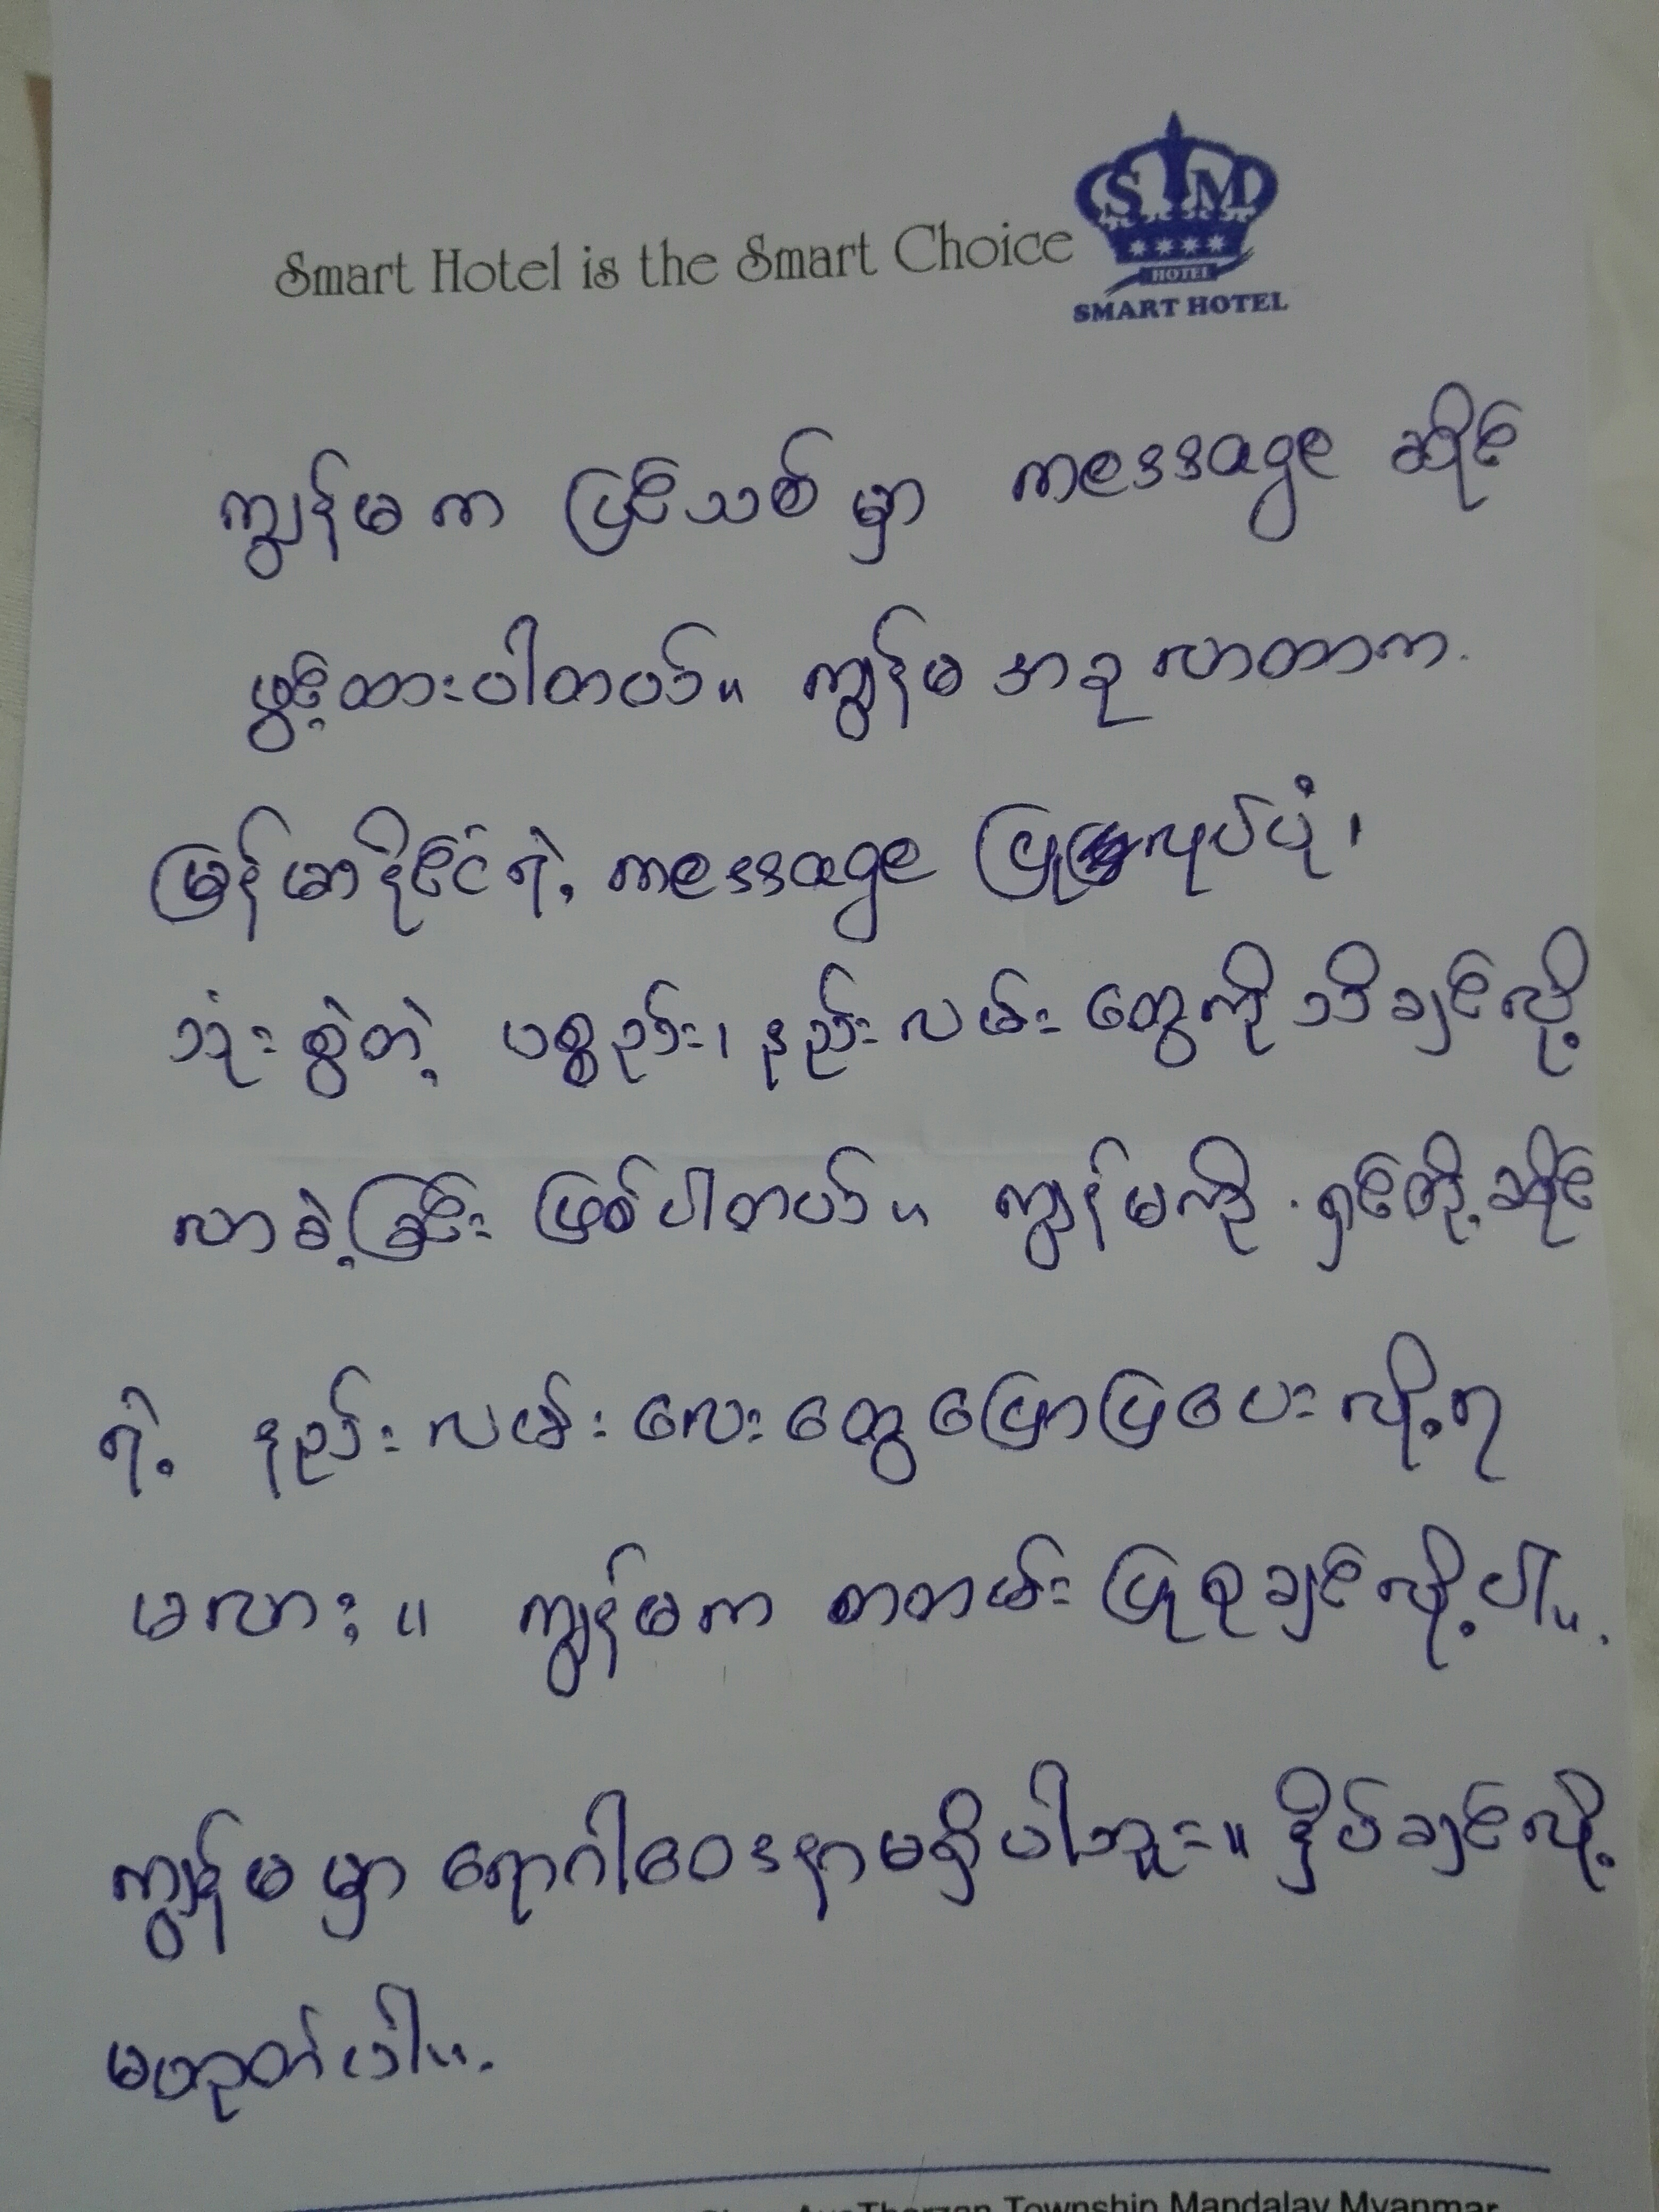 Smart Hotel is the Smart Choice
S M
HOTEL
SMART HOTEL
ကျွန်မက ပြင်သစ်မှာ message ဆိုင်
ဖွင့်ထားပါတယ်။ ကျွန်မ အခုလာတာက
မြန်မာနိုင်ငံရဲ့ message ပြုလုပ်ပုံ၊
သုံးစွဲတဲ့ ပစ္စည်း၊ နည်းလမ်းတွေကို သိချင်လို့
လာခဲ့ခြင်း ဖြစ်ပါတယ်။ ကျွန်မကို ရှင်တို့ဆိုင်
ရဲ့ နည်းလမ်းလေးတွေ ပြောပြပေးလို့ရ
မလား။ ကျွန်မက စာတမ်းပြုစုချင်လို့ပါ။
ကျွန်မမှာ ရောဂါဝေဒနာမရှိပါဘူး။ နှိပ်ချင်လို့
မဟုတ်ပါ။
Township Mandalay Myanmar